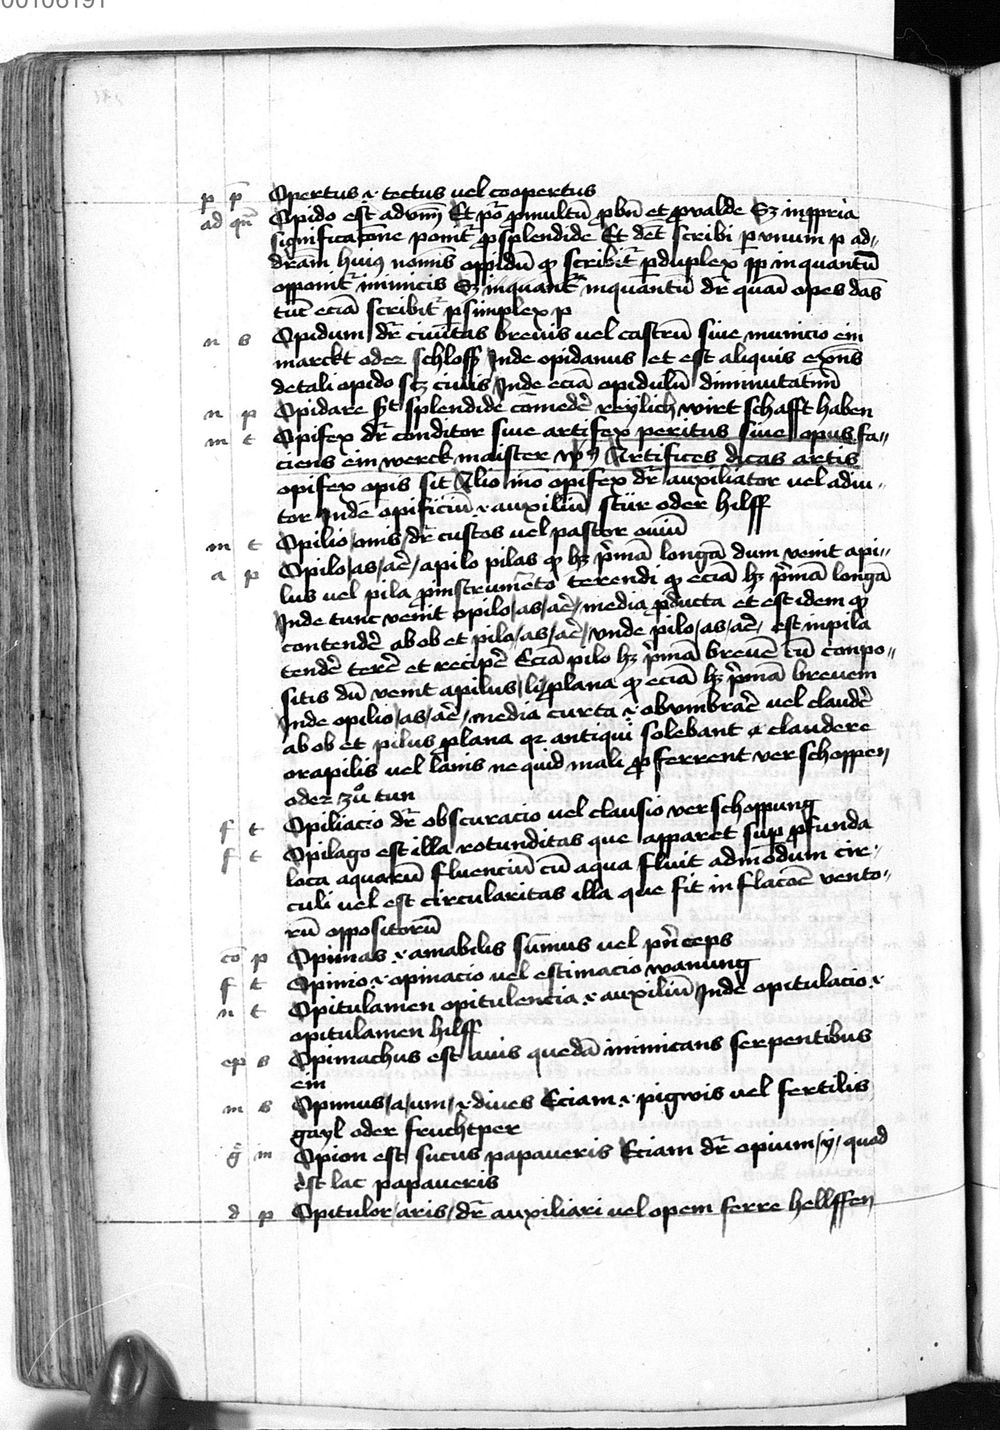 00106191
p p̄ Opertus .i. tectus uel coopertus
ad qn̄ Opido est adv̄m Et pō p multū p bn̄ et p valde Sz in pp̄ria
significac̄one ponit̄ p splendide Et det̄ scribi p vnum p ad„
dr̄am huiꝯ nomīs oppidū qꝫ scribit̄ p duplex pp in quantū
opponit̄ inimicis Sz inquant̄ inquantū dr̄ quasi opes das
tūc eciā scribit̄ p simplex p
n s Opidum dr̄ ciuitas breuis uel castrū siue municio ein
marckt oder schloss Inde opidanus et est aliquis exn̄s
de tali opido scz ciuis Inde eciā opidulū diminutatiuū
n p Opidare est splendide cōmedē reylich wirt schafft haben
m t Opifex dr̄ conditor siue artifex peritus siue opus fa„
ciens ein werck maister Artifices dicas artis
opifex opis sit Alio mō opifex dr̄ auxiliator uel adiu„
tor Inde opificiū .i. auxiliū stür oder hilff
m t Opilio/onis/dr̄ custos uel pastor ouiū
a p Opilo/as/aē/a pilo pilas qꝫ hꝫ p̄mā longā dum venit a pi„
lus vel pila p instrumēto terendi qꝫ eciā hꝫ p̄mā longā
Inde tunc venit opilo/as/aē/media p̄ducta et est idem qꝫ
contendē ab ob et pilo/as/aē/ vnde pilo/as/aē/ est in pila
tendē terē et recipē Eciā pilo hꝫ p̄mā breuē cū conpo„
sitis dū venit a pilus/li/p lana qꝫ eciā hꝫ p̄mā breuem
Inde opilio/as/aē/media curta .i. obvmbraē vel claudē
ab ob et pilus p lana qꝛ antiqui solebant claudere
ora pilis vel lanis ne quid mali pferrent ver schoppen
oder zuͦ tun
f t Opiliacio dr̄ obscuracio uel clausio ver schoppung
f t Opilago est illa rotunditas que apparet sup p funda
loca aquarū fluenciū cū aqua fluit ad modum cir„
culi vel est circularitas illa que fit in flacōe vento„
rū oppositorū
cō p Opimas .i. amabilis sūmus uel prīceps
f t Opinio .i. opinacio uel estimacio wanung
n t Opitulamen opitulencia .i. auxiliū Inde opitulacio .i.
opitulamen hilff
ep s Opimachus est auis quedā inimicans serpentibus
ein
m s Opimus/a/um/ .i. diues Eciam .i. pigwis uel fertilis
gayl oder fruchtper
g̃ m Opion est sucus papaueris Eciam dr̄ opium/y/ quod
est lac papaueris
d p Opitulor/aris/dr̄ auxiliari uel opem ferre hellffen